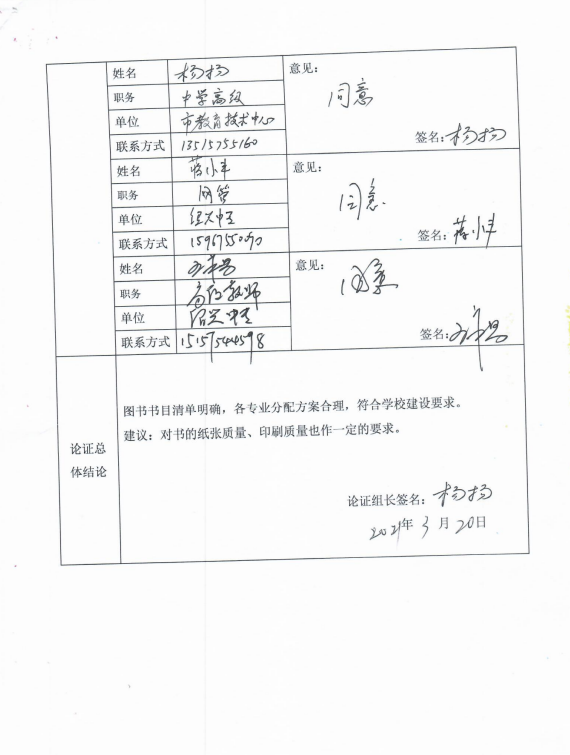 姓名 杨扬 意见：
同意
职务 中学高级
单位 市教育技术中心
联系方式 13515755160 签名：杨扬
姓名 蒋小丰 意见：
职务 网管 同意
单位
联系方式 签名：蒋小丰
姓名 意见：
职务 高级教师 同意
单位
联系方式 15157544598 签名：
图书书目清单明确，各专业分配方案合理，符合学校建设要求。
建议：对书的纸张质量、印刷质量也作一定的要求。
论证总
体结论
论证组长签名：杨扬
2021年 3 月 20日